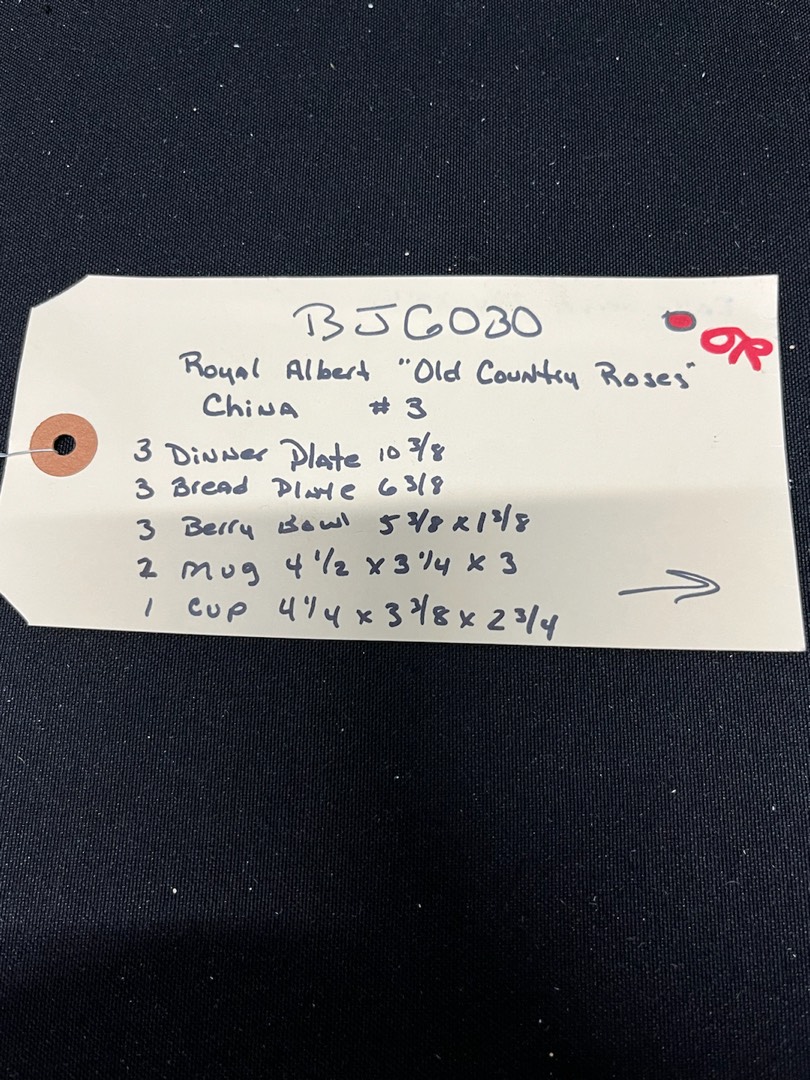 BJ6030
OR
Royal Albert "Old Country Roses"
China # 3
3 Dinner Plate 10 3/8
3 Bread Plate 6 3/8
3 Berry Bowl 5 3/8 x 1 3/8
2 Mug 4 1/2 x 3 1/4 x 3
1 Cup 4 1/4 x 3 3/8 x 2 3/4